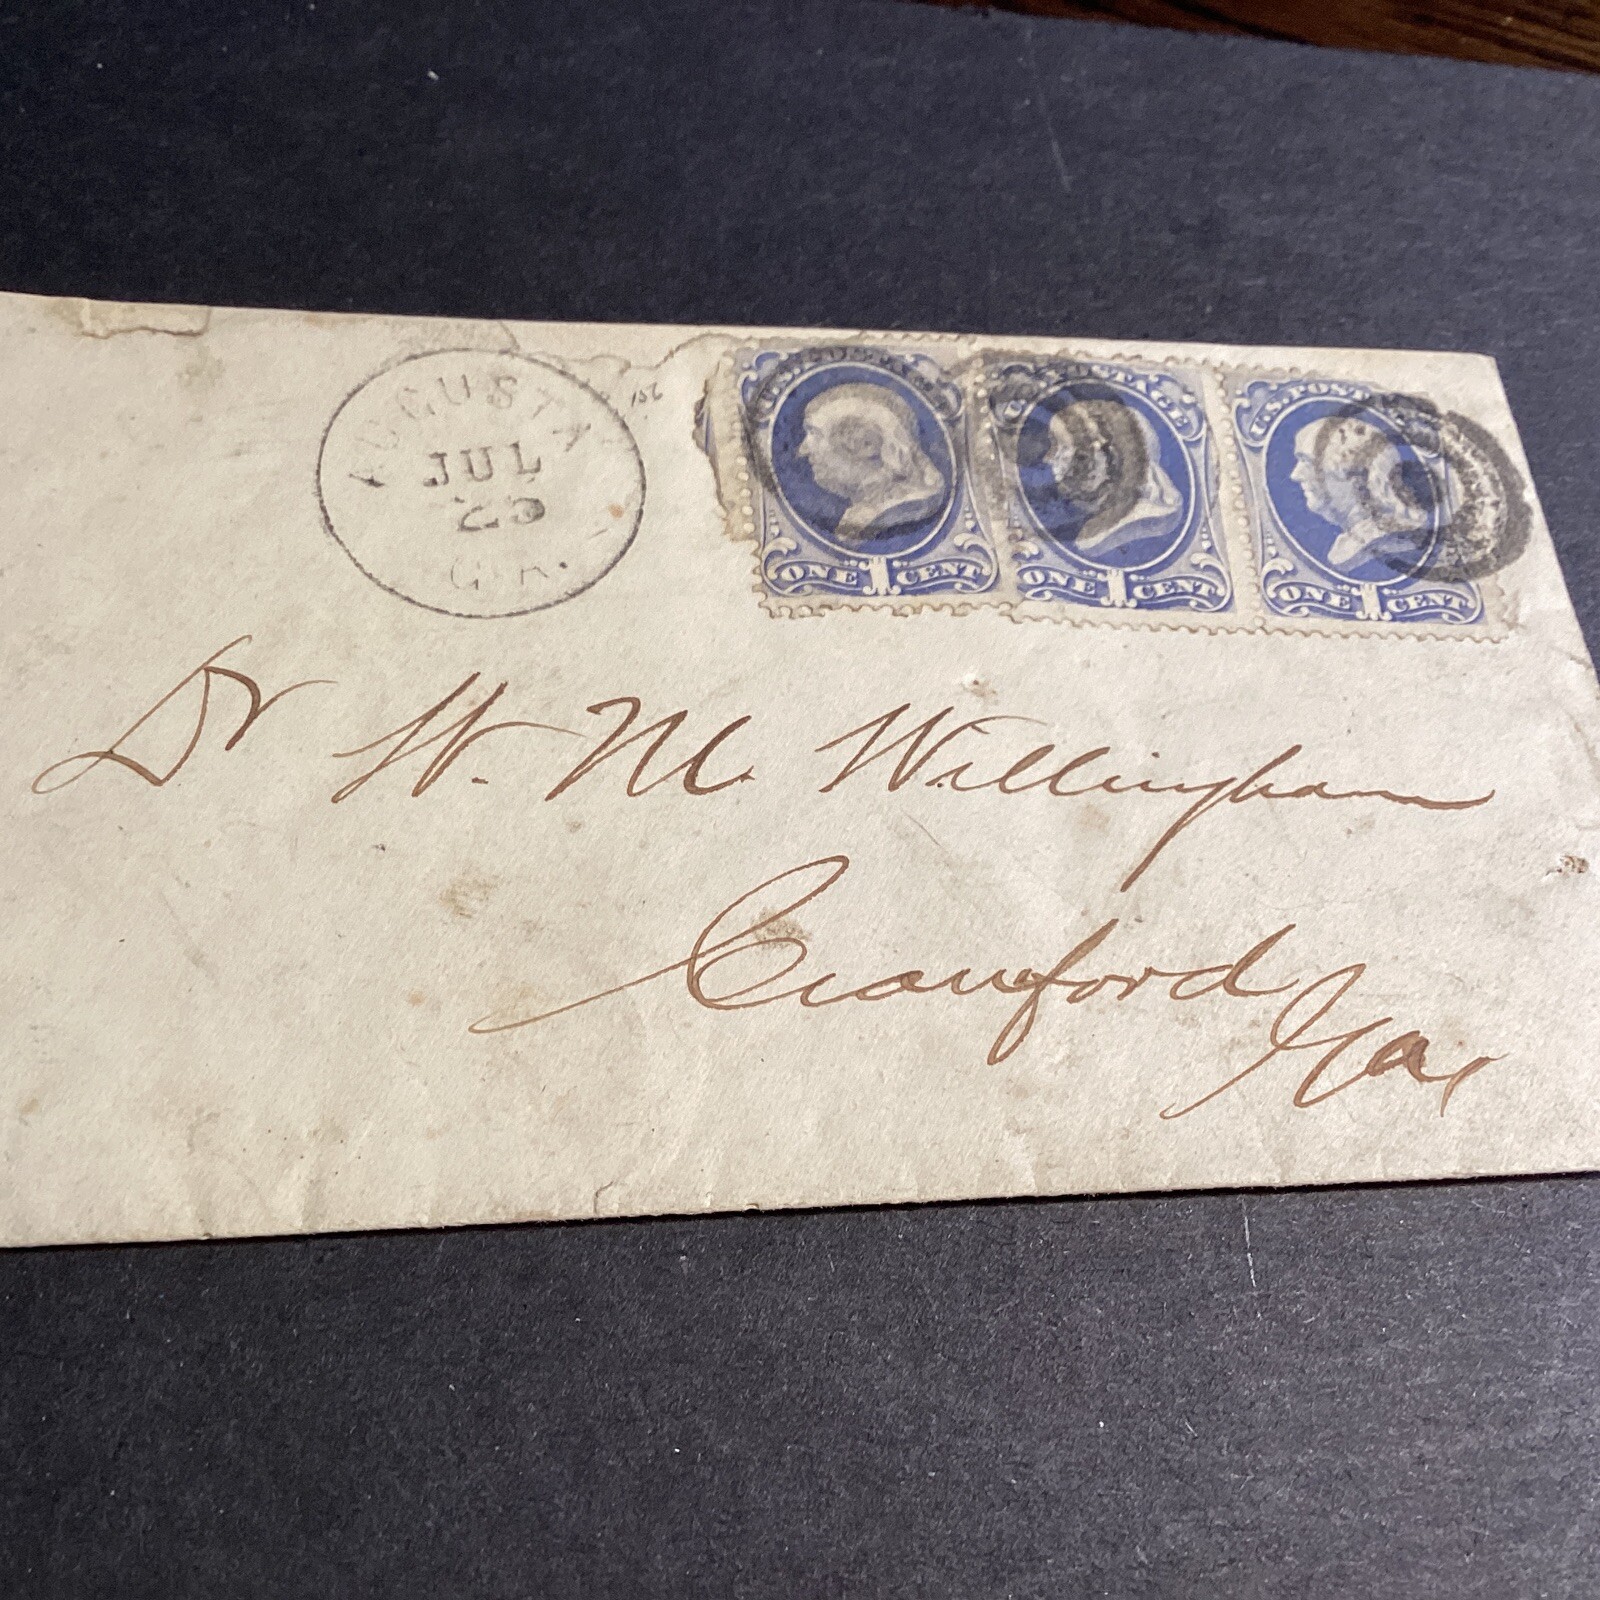 AUGUSTA
JUL
25
GA.
156
U.S. POSTAGE
ONE 1 CENT
U.S. POSTAGE
ONE 1 CENT
U.S. POST
ONE 1 CENT
Dr W. M. Willingham
Crawford
Ga,